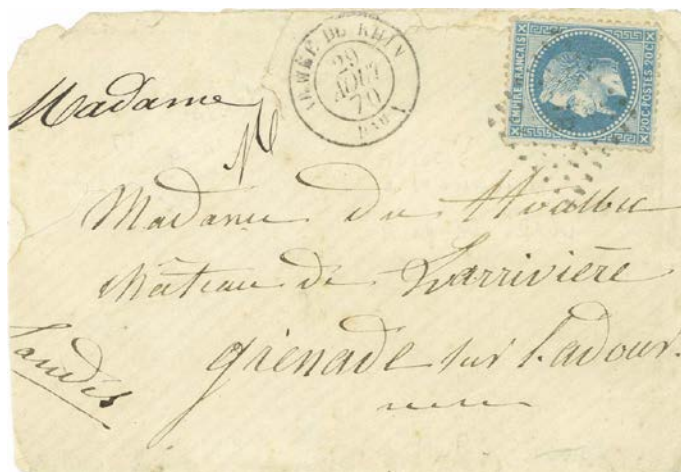 ARMÉE DU RHIN
29
AOUT
70
EMPIRE FRANCAIS
20C POSTES 20C
Madame
Madame du
château de Larrivière
grenade sur l'adour.
Landes